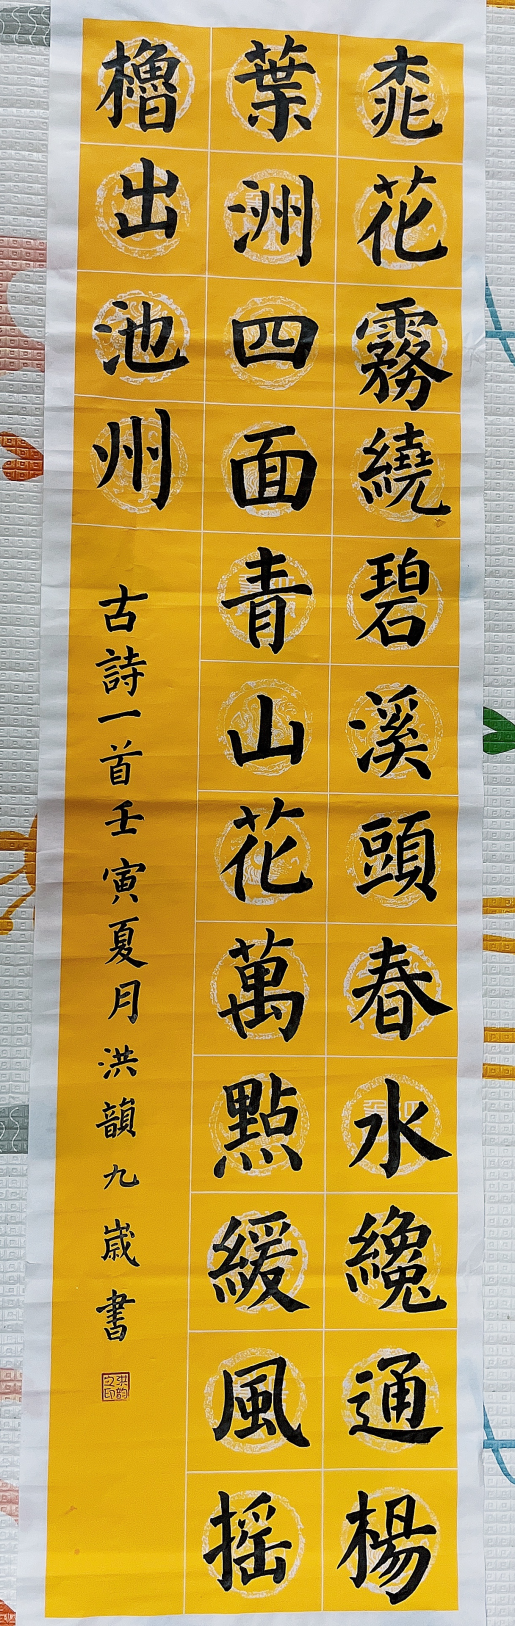 桃花霧繞碧溪頭春水纔通楊
葉洲四面青山花萬點緩風摇
櫓出池州
古詩一首壬寅夏月洪韻九歲書
洪韵之印